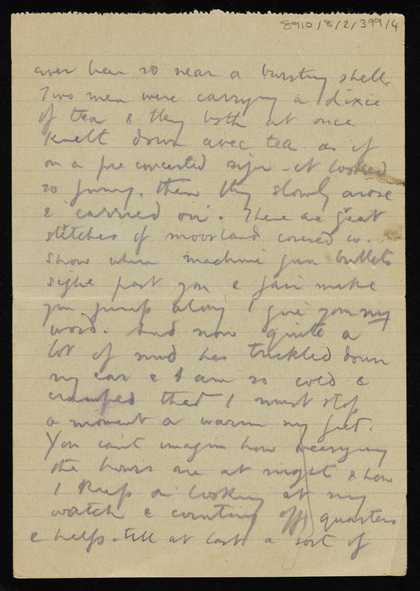 8910/8/2/399/4
ever been so near a bursting shell.
Two men were carrying a dixie
of tea & they both at once
knelt down avec tea as if
on a preconcerted sign - it looked
so funny. then they slowly arose
& 'carried on'. There are great
stretches of moorland covered w.
snow when machine gun bullets
sighe past you & fair make
you jump along I give you my
word. And now quite a
lot of mud has trickled down
my ear & I am so cold &
cramped that I must stop
a moment & warm my feet.
You can't imagine how wearying
the hours are at night & how
I keep on looking at my
watch & counting off quarters
& helps till at last a sort of